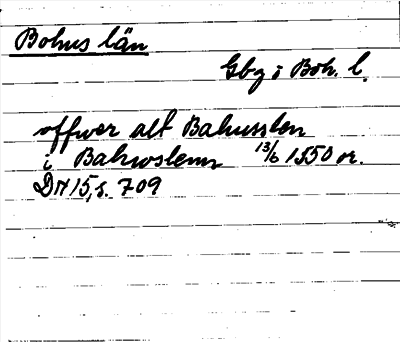 Bohus län
Gbg o Boh. l.
offwer alt Bahusslen
i Bahwslenn 13/6 1550 or.
DN 15, s. 709